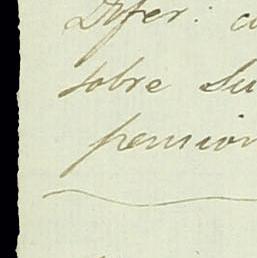 Difer: a
sobre su
pension